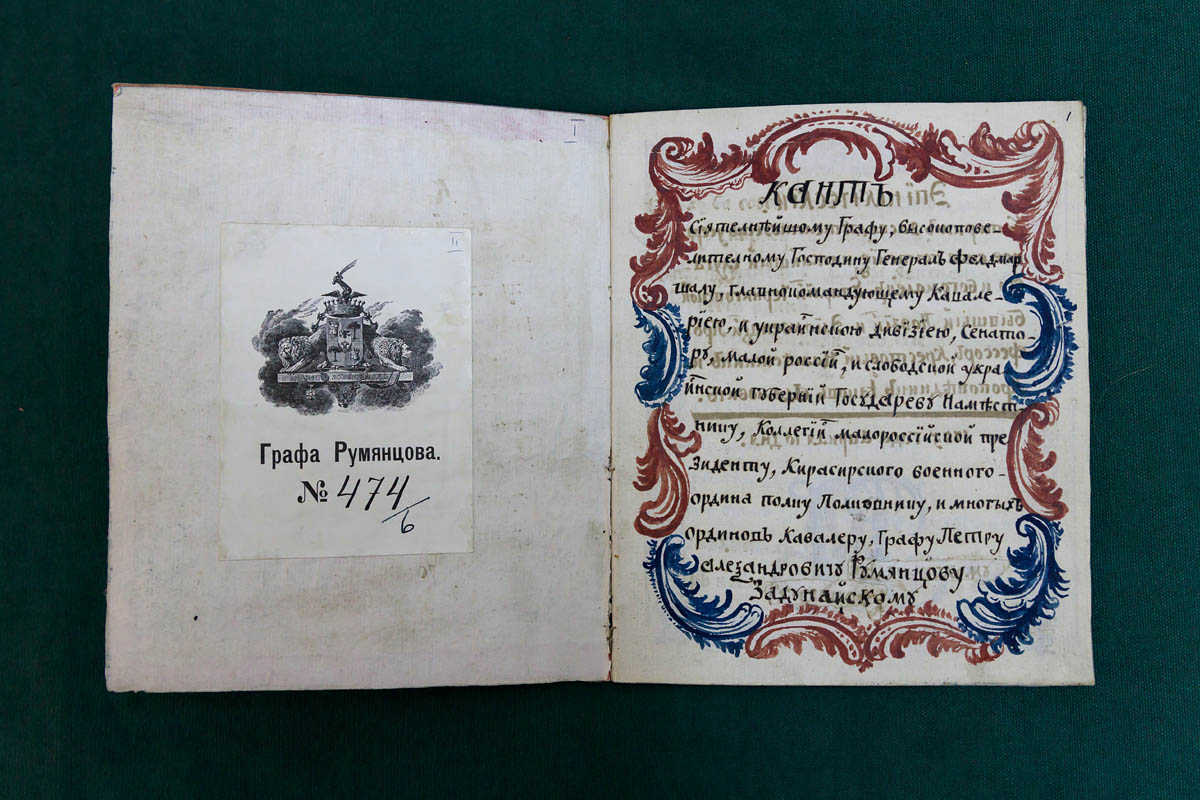 I
11
Графа Румянцова.
№ 474/6
1
КАНТЪ
Сїятелнѣйшому Графу, высокопове-
лителному Господину Генералъ Фелдмар
шалу, главнокомандующему Кавале-
рїею, и украинскою дивїзїею, Сенато-
ру, малой россїи, и слободской укра-
инской губернїй Государеву Намѣст-
нику, Коллегїи малороссїйской пре
зиденту, Кирасирского военного-
ордина полку Полковнику, и многыхъ
ординовъ Кавалеру, Графу Петру
Александровичу Румянцову
Задунайскому